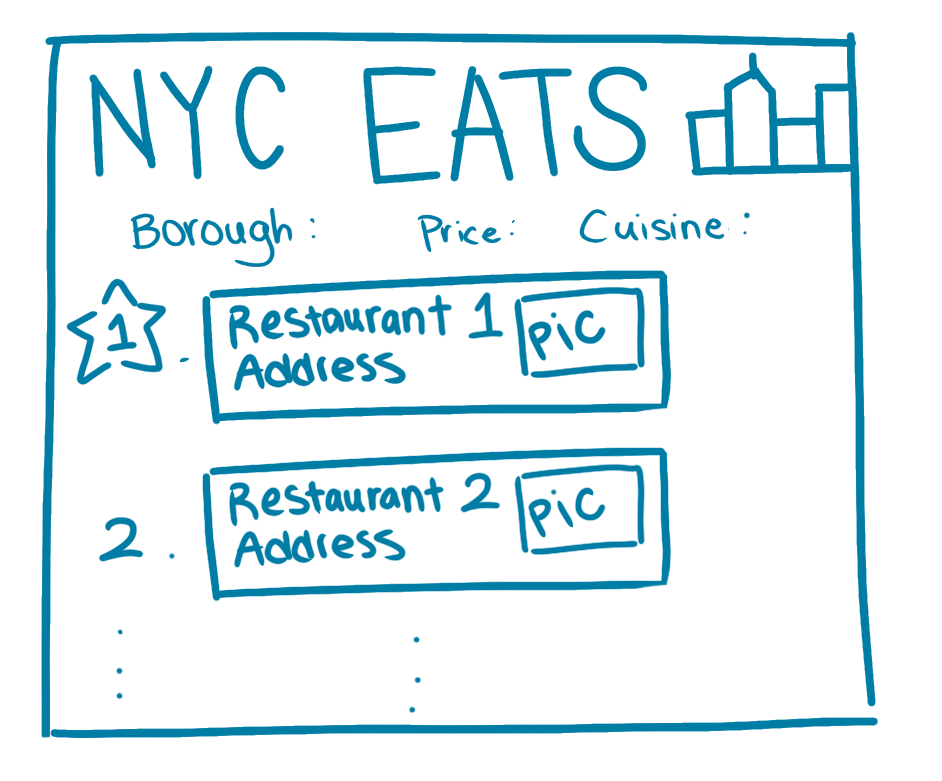 NYC EATS
Borough: Price: Cuisine:
1. Restaurant 1 pic
Address
2. Restaurant 2 pic
Address